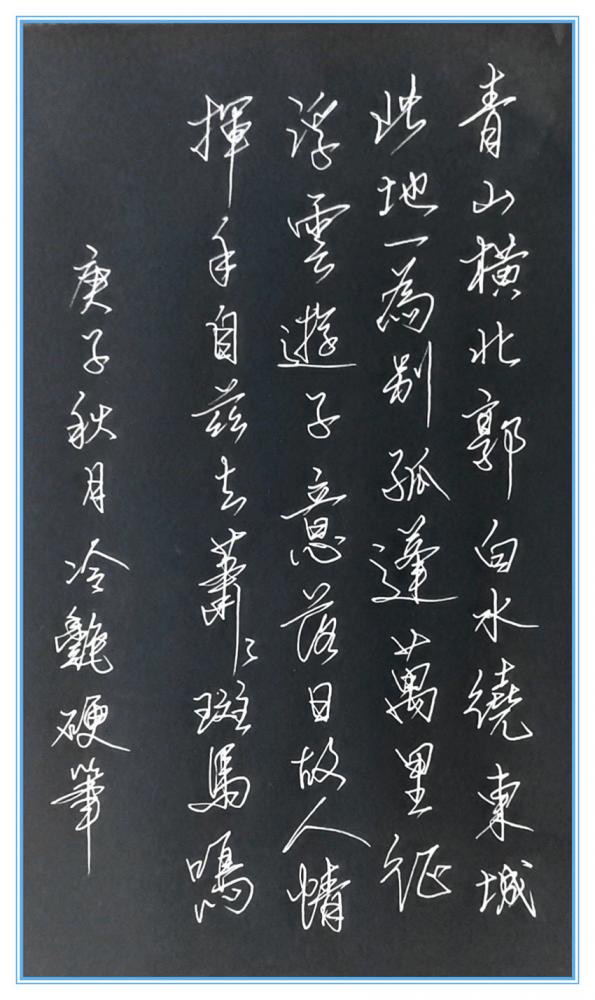 青山橫北郭白水繞東城
此地一為別孤蓬萬里征
浮雲遊子意落日故人情
揮手自茲去蕭〻斑馬鳴
庚子秋月冷硬筆